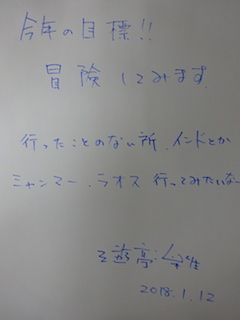 今年の目標!!
冒険してみます
行ったことのない所、インドとか
ミャンマー、ラオス 行ってみたいな
三遊亭
2018.1.12